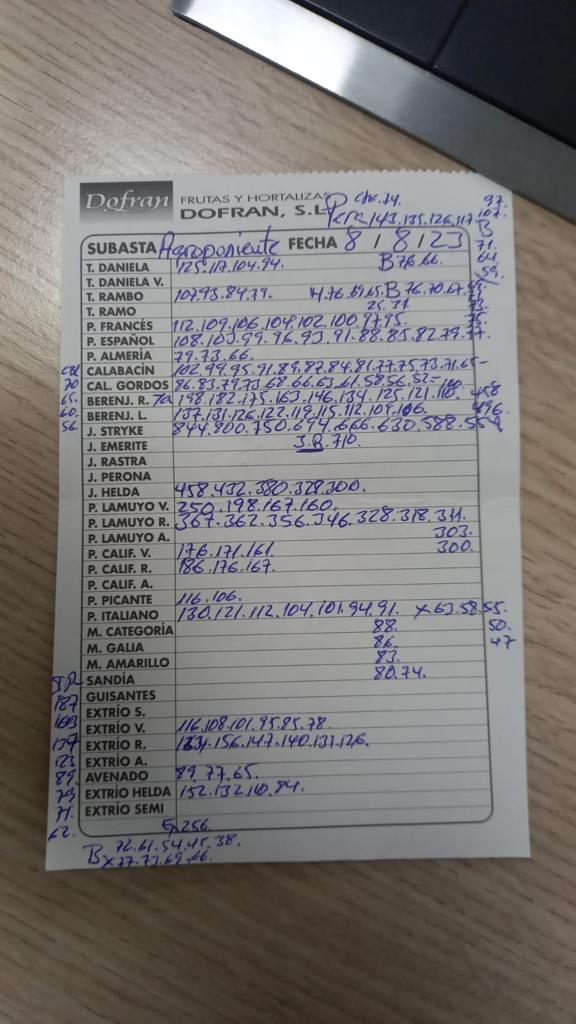 Dofran FRUTAS Y HORTALIZAS
DOFRAN, S.L.
SUBASTA Agroponiente FECHA 8 / 8 / 23
T. DANIELA 125.117.104.94. B 76.66.
T. DANIELA V.
T. RAMBO 107.93.84.79.
T. RAMO
P. FRANCÉS 112.109.106.104.102.100.97.95.
P. ESPAÑOL 108.103.99.96.93.91.88.85.82.79.77
P. ALMERÍA 79.73.66.
CALABACÍN 102.99.95.91.89.87.84.81.77.75.73.71.65-
CAL. GORDOS 86.83.79.73.68.66.63.61.58.56.52
BERENJ. R. 198.182.175.163.146.134.125.121.110.
BERENJ. L. 137.131.126.122.119.115.112.109.106.
J. STRYKE 844.800.750.694.666.630.588.554
J. EMERITE J.R. 710.
J. RASTRA
J. PERONA
J. HELDA 458.432.380.328.300.
P. LAMUYO V. 250.198.167.160.
P. LAMUYO R. 367.362.356.346.328.318.311.
P. LAMUYO A. 303.
P. CALIF. V. 176.171.161. 300.
P. CALIF. R. 186.176.167.
P. CALIF. A.
P. PICANTE 116.106.
P. ITALIANO 130.121.112.104.101.94.91. x 63.58.55.
M. CATEGORÍA 88. 50.
M. GALIA 86. 47
M. AMARILLO 83.
SANDÍA 80.74.
GUISANTES
EXTRÍO S.
EXTRÍO V. 116.108.101.95.85.78.
EXTRÍO R. 156.147.140.131.126.
EXTRÍO A.
AVENADO 89.77.65.
EXTRÍO HELDA 152.132.110.84.
EXTRÍO SEMI
256.
B 72.61.54.45.38.
x 77.73.69.66.